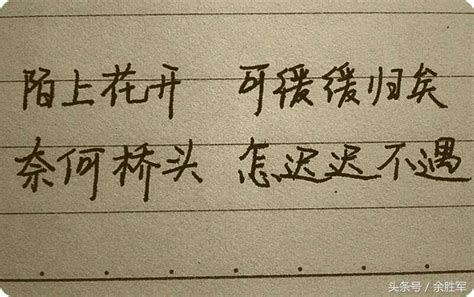 陌上花开 可缓缓归矣
奈何桥头 怎迟迟不遇
头条号 / 余胜军